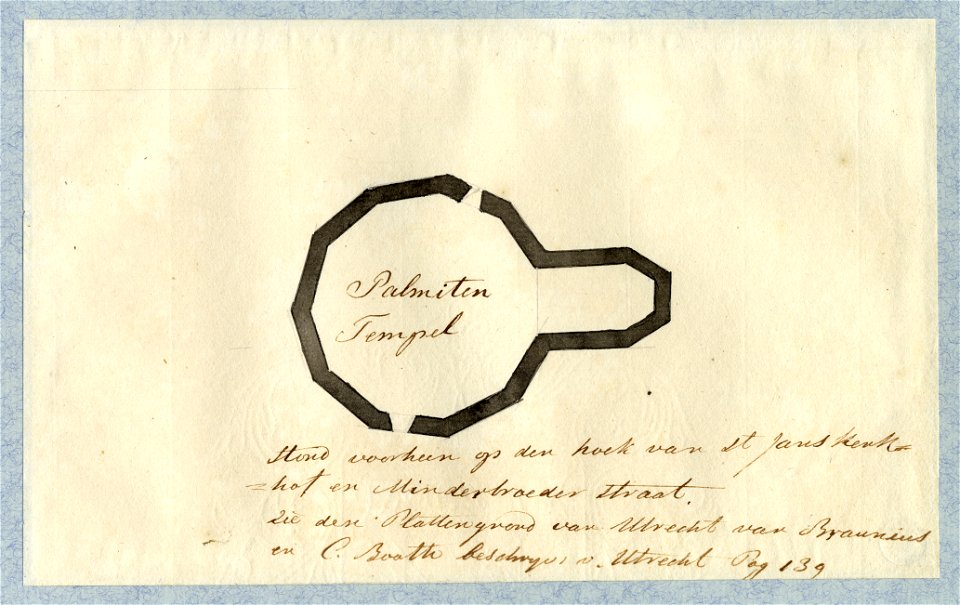 Palmiten
Tempel
Stond voorheen op den hoek van St Jans Kerk=
=hof en Minderbroeder straat.
Zie den Plattengrond van Utrecht van Braunius
en C. Booth beschryv: v. Utrecht Pag 139